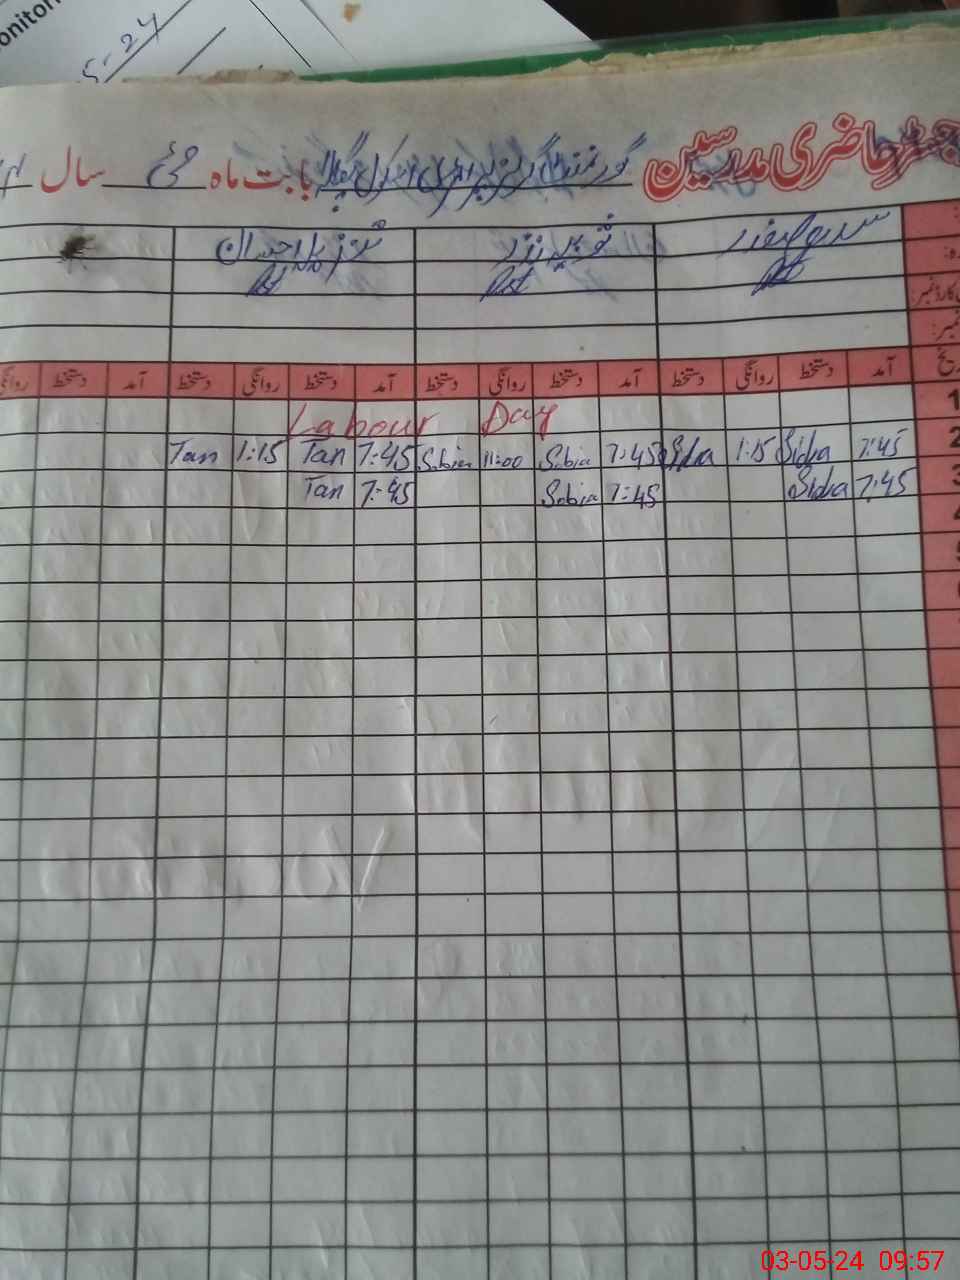 onitori
5-24
رجسٹر حاضری مدرسین گورنمنٹ گرلز پرائمری سکول بابت ماہ مئی سال
Pst Pst Pst
کارڈ نمبر:
نمبر:
آمد دستخط روانگی دستخط آمد دستخط روانگی دستخط آمد دستخط روانگی دستخط آمد دستخط روانگی
1 Labour Day
2 7:45 Sidra 1:15 Sidra 7:45 Sobia 11:00 Sobia 7:45 Tan 1:15 Tan
3 7:45 Sidra 7:45 Sobia 7:45 Tan
03-05-24 09:57